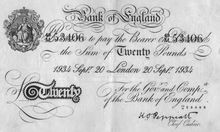 Bank of England
53406 to pay the Bearer 53406
the Sum of Twenty Pounds
1934 Sept. 20 London 20 Sept. 1934
For the Gov: and Comp.ª
£ Twenty of the Bank of England
K.O. Peppiatt
Chief Cashier